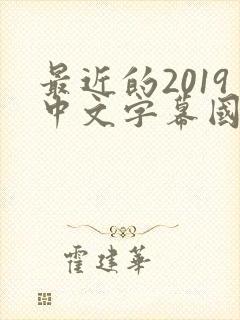 最近的2019
中文字幕國
霍建華